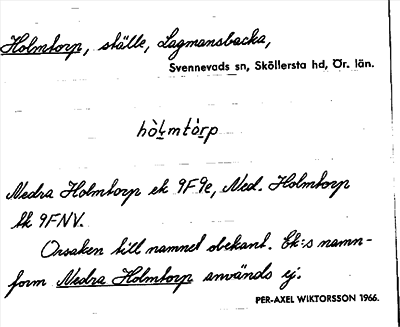 Holmtorp, ställe, Lagmansbacka,
Svennevads sn, Sköllersta hd, Ör. län.
hòlmtòrp
Nedra Holmtorp ek 9F9e, Ned. Holmtorp
tk 9FNV.
Orsaken till namnet obekant. Ek:s namn-
form Nedra Holmtorp används ej.
PER-AXEL WIKTORSSON 1966.